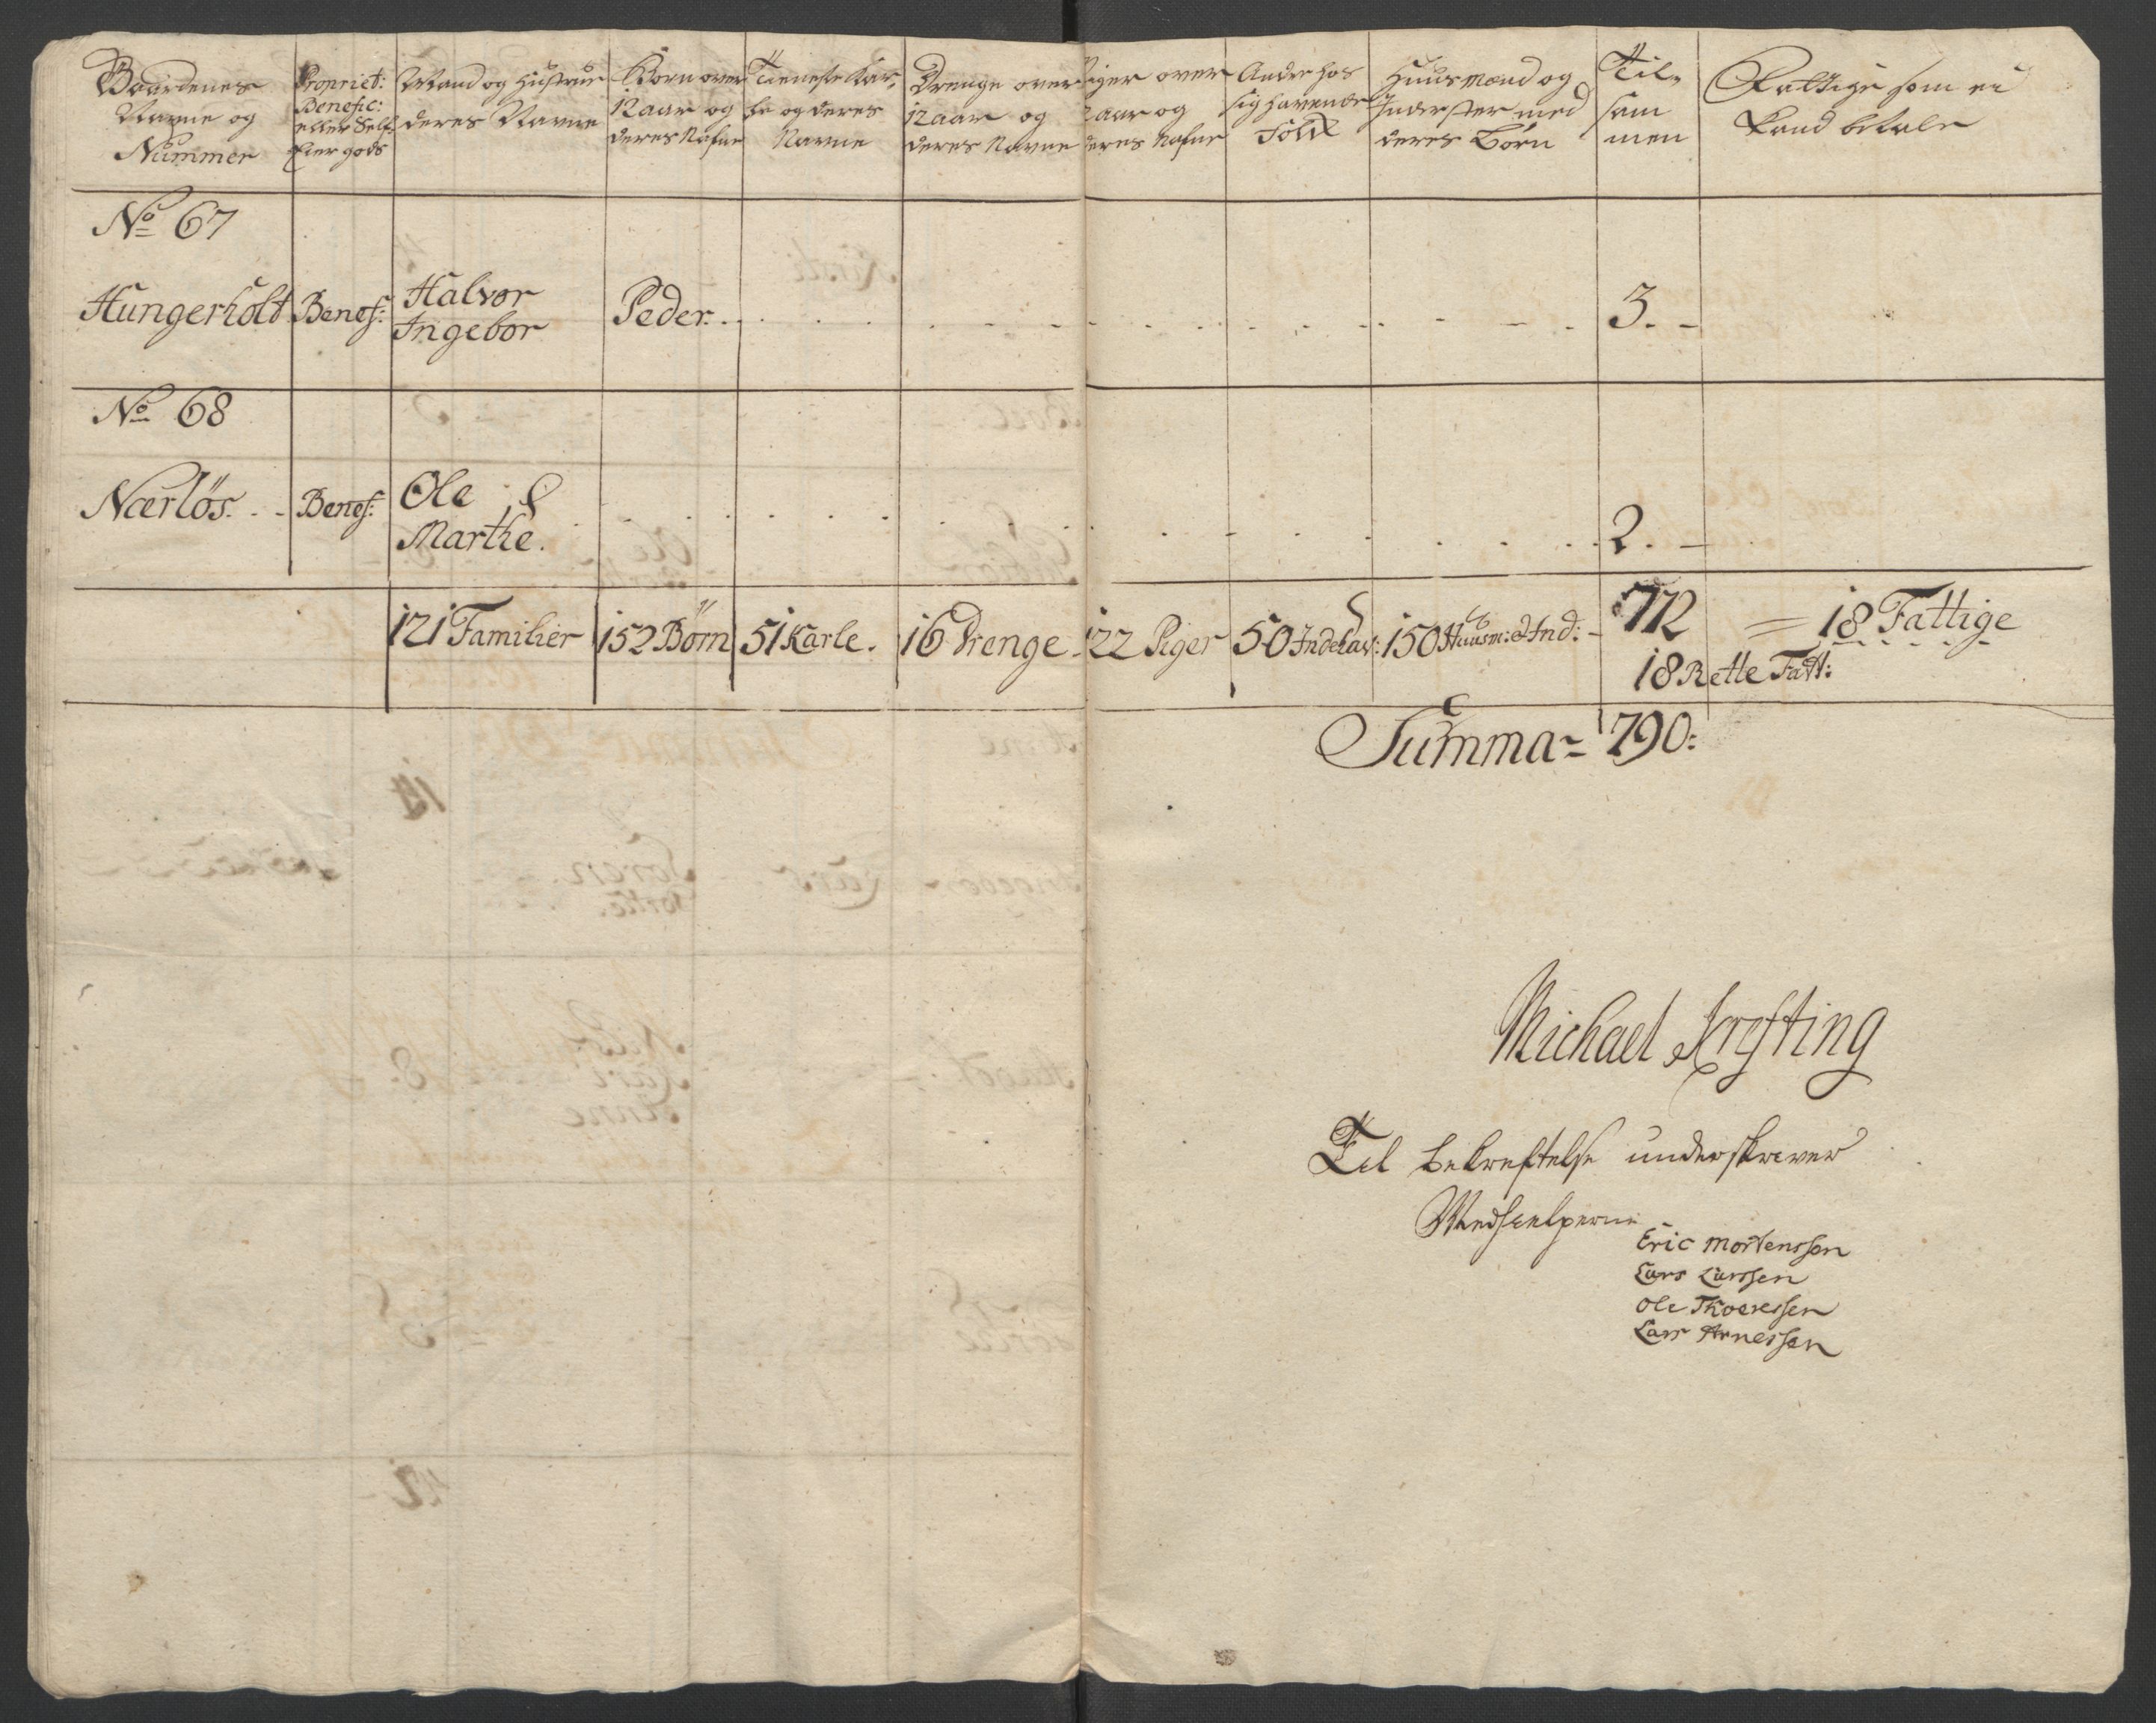 Gaardenes
Navne og
Nummer
Propriet:
Benefic:
eller Self
Eier gods
Mand og Hustrue
deres Navne
Børn over
12 aar og
deres Nafne
Tieneste Kar,
le og deres
Navne
Drenge over
12 aar og
deres Navne
Piger over
12 aar og
deres Nafne
Andre hos
sig havende
Folk
Huusmænd og
Inderster med
deres Börn
Til,
sam
men
Fattige som ei
kand betale
No 67
Hungerholt Benef: Halvor
Ingebor
Peder. 3.
No 68
Nærlös. Benef: Ole &
Marthe. 2.
121 Familier 152 Börn 51 Karle. 16 Drenge. 122 Piger 50 Indehav: 150 Huusm: & Ind: 772 = 18 Fattige
18 Rette Fatt:
Summa = 790:
Michael Krefting
Til bekræftelse underskrever
Medhielperne
Eric Mortenssen
Lars Larssen
Ole Thoeressen
Lars Arnessen